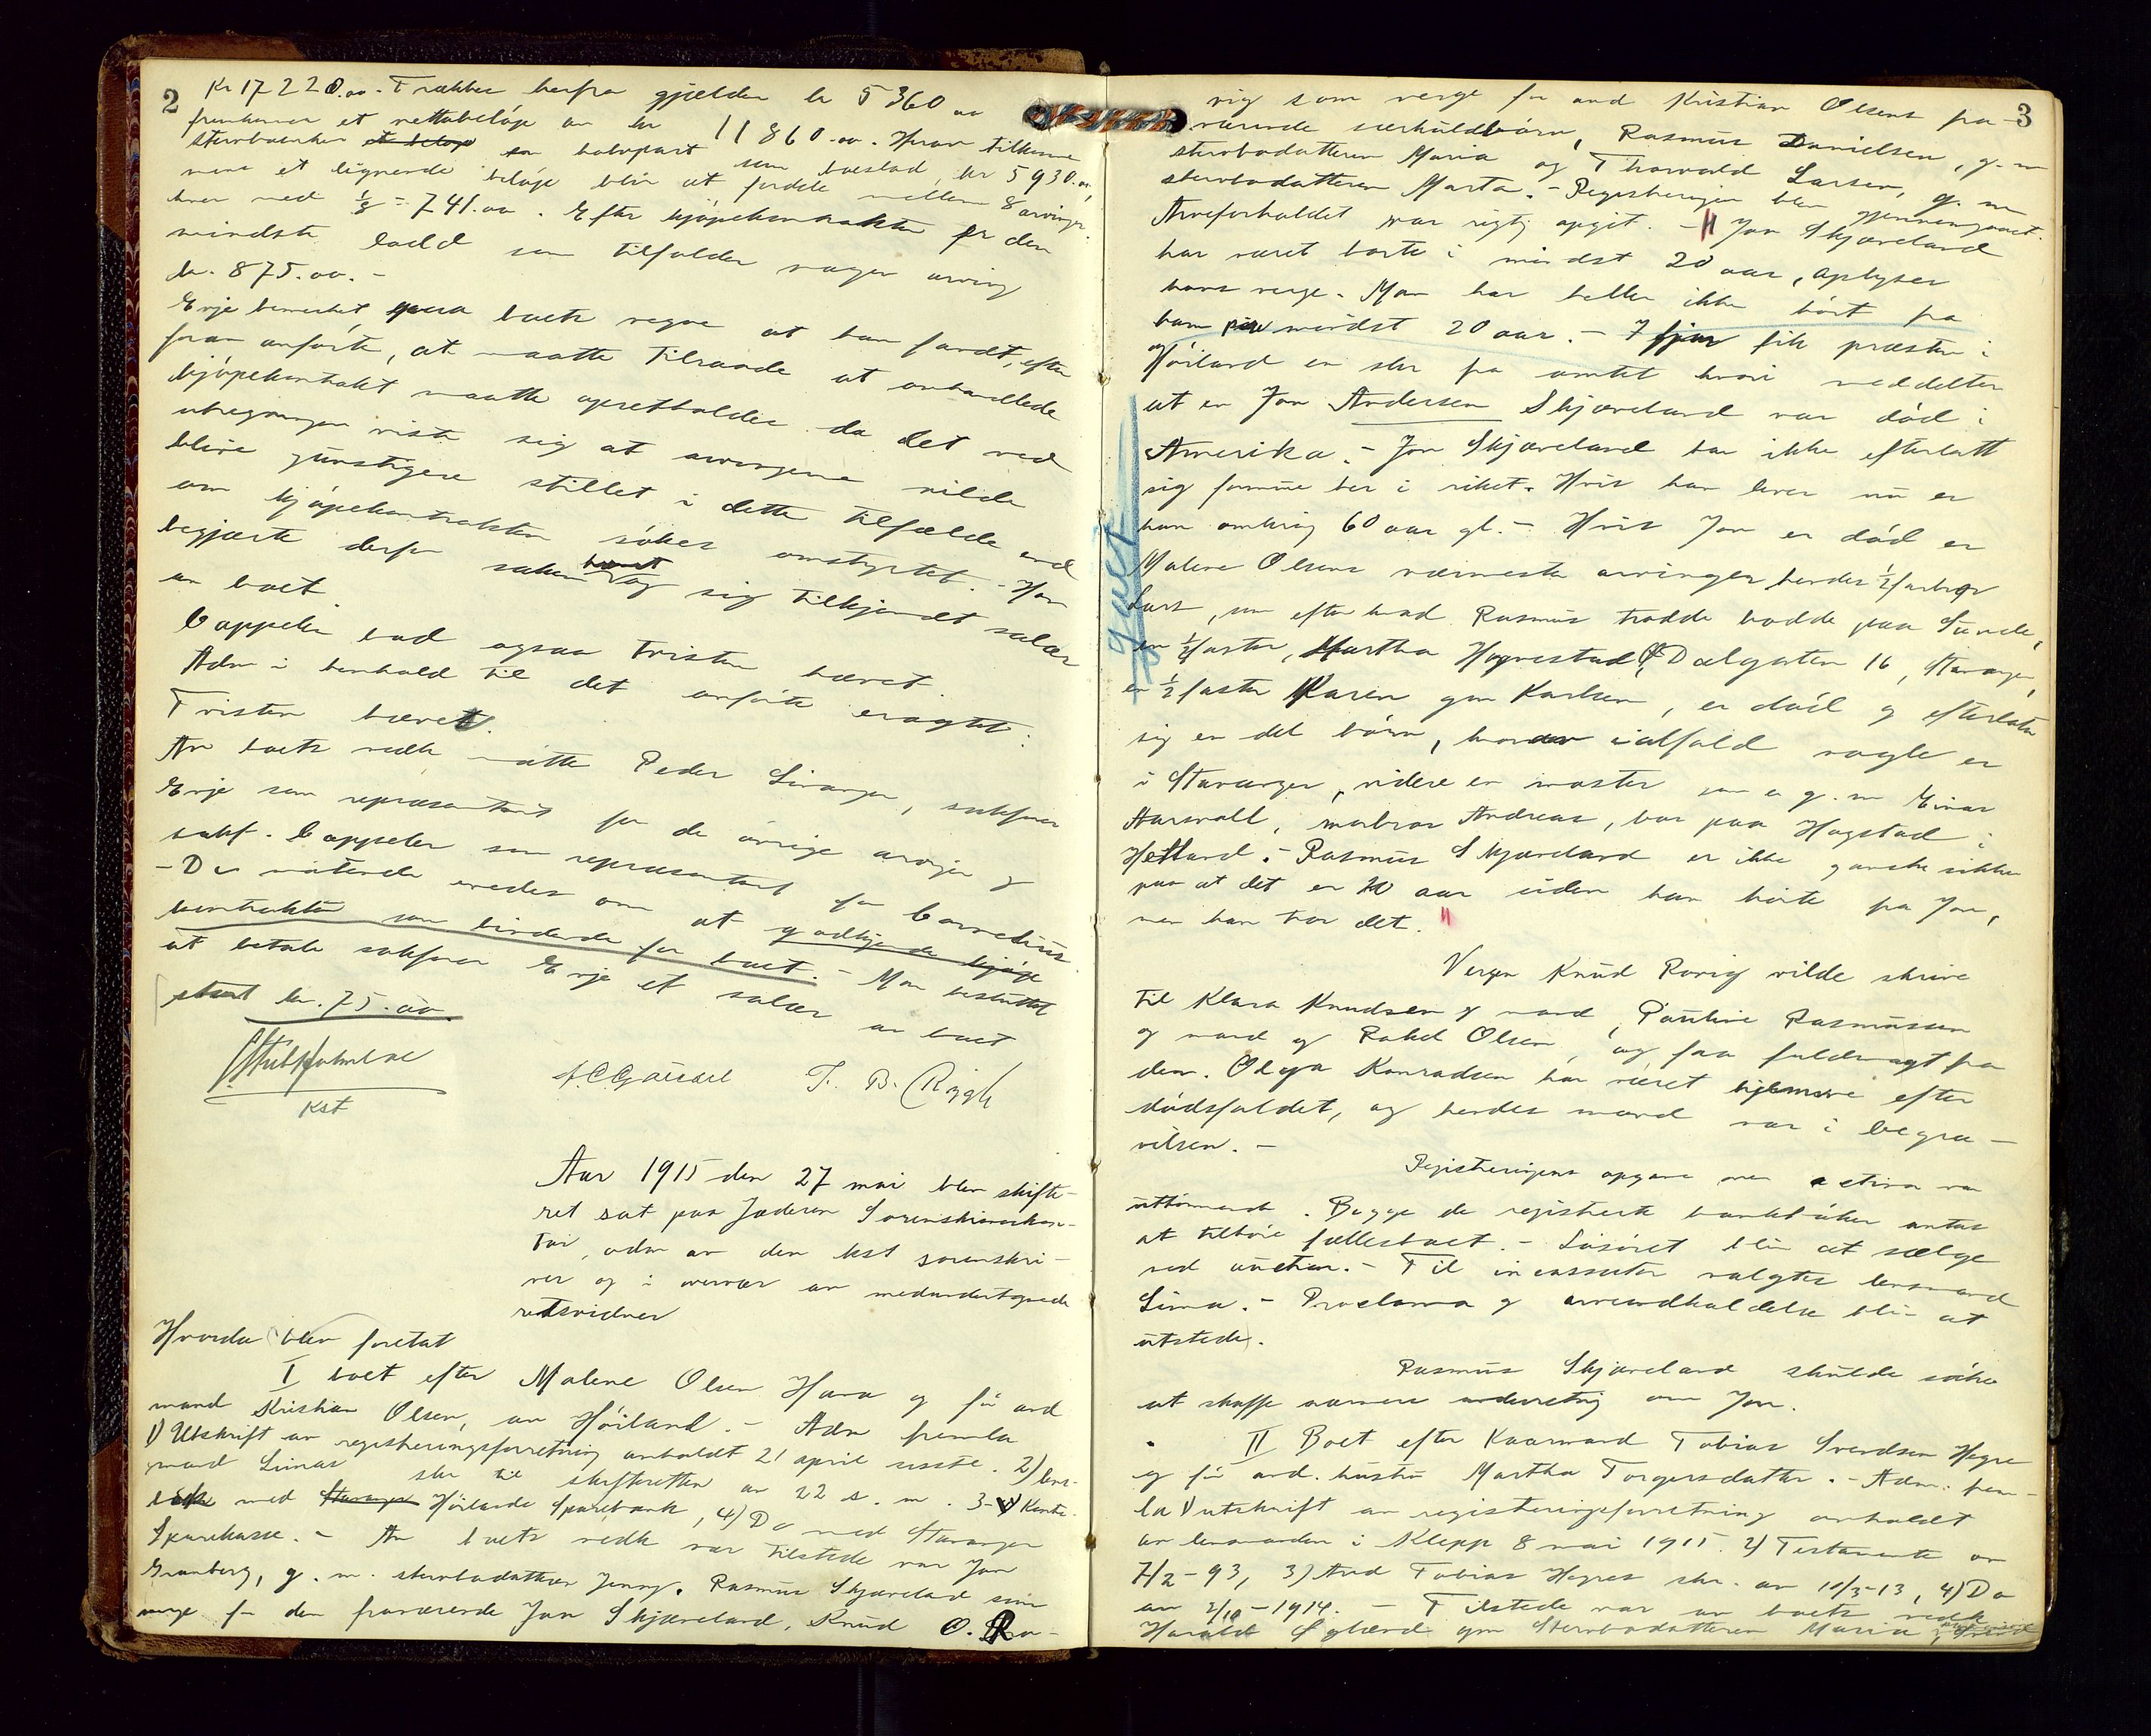 2
Kr 17220.00. Trækkes herfra gjælden kr 5360.00
fremkommer et nettobeløp av kr 11860.00. Herav tilkommer
stervboenken et beløp en halvpart som boeslod, kr 5930.00,
mens et lignende beløp blir at fordele mellem 8 arvinger
hver med 1/8 = 741.00. Efter kjøpekontrakten er den
mindste lodd som tilfalder nogen arving
kr. 875.00. -
Erje bemerket paa boets vegne at han fandt, efter
foran anførte, at maatte tilraade at omhandlede
kjøpekontrakt maatte opretholdes da det ved
utregningen viste sig at arvingene vilde
blive gunstigere stillet i dette tilfælde end
om kjøpekontrakten søkes omstyrtet. - Han
begjærte derfor saken hævet og sig tilkjendt salær
av boet.
Cappelen bad ogsaa tvisten hævet.
Adm i henhold til det anførte eragtet:
Tvisten hævet.
Av boets vedk møtte Peder Sivangen, sakfører
Erje som repræsentant for de øvrige arvinger og
sakf. Cappelen som repræsentant for Cornelius.
- De møtende enedes om at godkjende kjøpe
kontrakten som bindende for boet. - Man besluttet
at betale sakfører Erje et salær av boet
stort kr. 75.00.
Kst
T. B. Rygh
Aar 1915 den 27 mai blev skifte-
ret sat paa Jæderen Sorenskriverkon-
tor, adm av den kst sorenskri-
ver og i overvær av medundertegnede
retsvidner
Hvorda blev foretat
I boet efter Malene Olsen Hana og før avd
mand Kristian Olsen, av Høiland. - Adm fremla
1) Utskrift av registreringsforretning avholdt 21 april sisstl. 2) lens-
mand Limas skr til skifteretten av 22 s. m. 3) Kontra-
bok med Stavanger Høilands Sparebank, 4) Do med Stavanger
Sparekasse. - Av boets vedk var tilstede var Jon
Granberg, g. m. sterbodatteren Jenny. Rasmus Skjæveland som
verge for den fraværende Jon Skjæveland, Knud O. Ro-
3
vig som verge for avd Kristian Olsens fra-
værende særkuldbørn, Rasmus Danielsen, g. m
sterbodatteren Maria og Thorvald Larsen, g. m
sterbodatteren Marta. - Registreringen blev gjennemgaaet.
Arveforholdet var rigtig opgit. - Jon Skjæveland
har været borte i mindst 20 aar, oplyser
hans verge. Man har heller ikke hørt fra
ham paa mindst 20 aar. - I fjor fik præsten i
Høiland en skr fra amtet hvori meddeltes
at en Jon Andersen Skjæveland var død i
Amerika. - Jon Skjæveland har ikke efterlatt
sig formue her i riket. Hvis han lever nu er
han omkring 60 aar gl. - Hvis Jon er død er
Malene Olsens nærmeste arvinger hendes 1/2 farbror
Lars, som efter hvad Rasmus trodde bodde paa Sunde,
en 1/2 faster, Martha Hognestad, Dalgaten 16, Stavanger,
en 1/2 faster Karen gm Karlsen, er død og efterlatt
sig en del børn, hvorav ialfald nogle er
i Stavanger, videre en moster som er g. m Einar
Aarvoll, morbror Andreas, bor paa Hogstad i
Hetland. - Rasmus Skjæveland er ikke ganske sikker
paa at det er 20 aar siden han hørte fra Jon,
men han tror det.
gaaet
Vergen Knud Rovig vilde skrive
til Klara Knudsen og mand, Pauline Rasmussen
og mand og Rakel Olsen, og faa fuldmagt fra
dem. Olga Konradsen har været hjemme efter
dødsfaldet, og hendes mand var i begra-
velsen. -
Registreringens opgave over activa var
uttømmende. Begge de registrerte bankbøker antas
at tilhøre fællesboet. - Løsøret blir at sælge
ved auction. - Til incassator valgtes lensmand
Lima. - Proclama og arveindkaldelse blir at
utstede.
Rasmus Skjæveland skulde søke
at skaffe nærmere underretning om Jon.
II Boet efter Kaarmand Tobias Svendsen Hegre
og før avd. hustru Martha Torgersdatter. - Adm. frem-
la 1) utskrift av registreringsforretning avholdt
av lensmanden i Klepp 8 mai 1915. 2) Testamente av
7/2-93, 3) Avd Tobias Hegres skr. av 10/3-13, 4) Do
av 2/10-1914. - Tilstede var av boets vedk
Harald gm Sterbodatteren Maria,